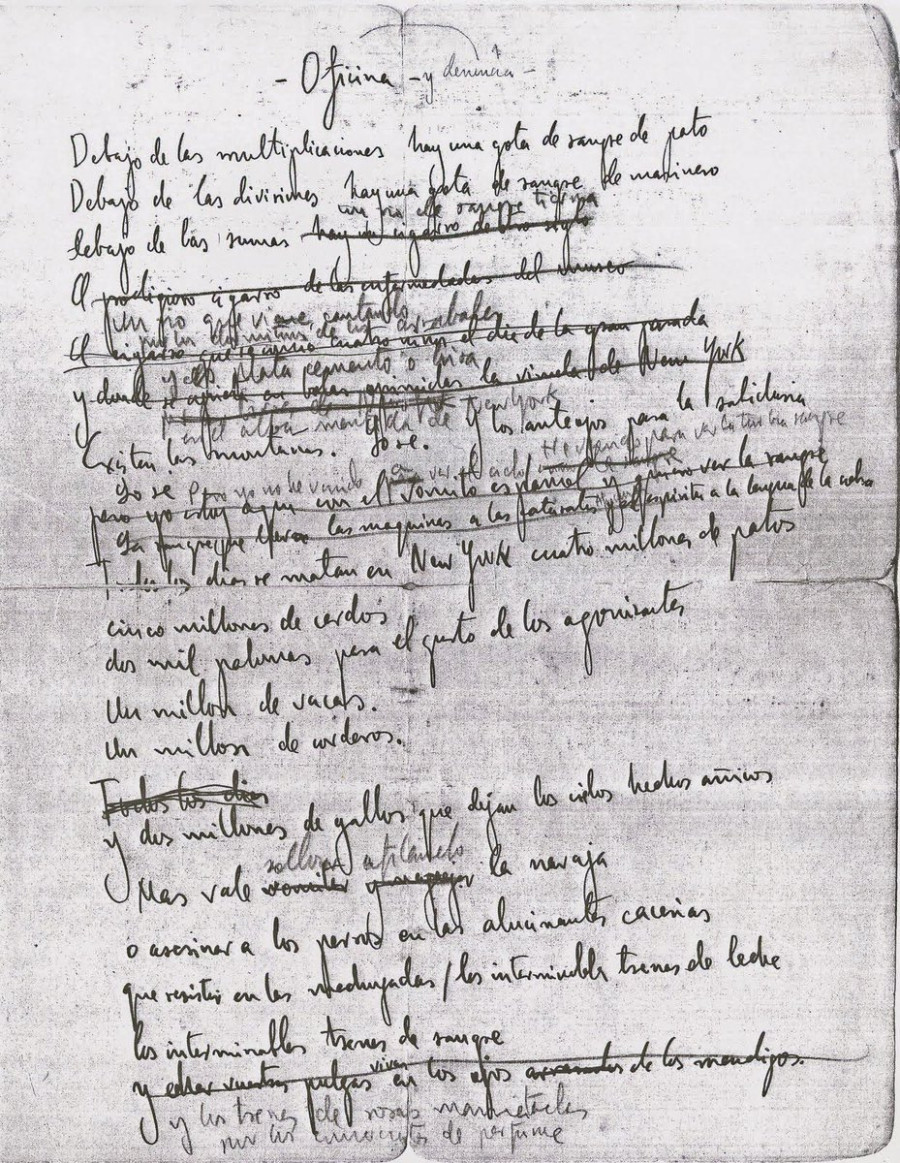 - Oficina - y denuncia -
Debajo de las multiplicaciones hay una gota de sangre de pato
Debajo de las divisiones hay una gota de sangre de marinero
un rio de sangre tierna
Debajo de las sumas hay un cigarro de otro siglo
El prodigioso cigarro de las enfermedades del museo
Un rio que viene cantando
por los dormitorios de los arrabales
El cigarro que cuatro el dia de la gran parada
y es plata cemento o brisa
y donde se en la viruela de New York
en el alba mentida de New York
Existen las montañas. Yo se. Y los anteojos para la sabiduria
Yo se Pero yo no he venido a ver el cielo He venido para ver la turbia sangre
pero yo estoy aqui con el vomito español y quiero ver la sangre
La sangre que lleva las maquinas a las cataratas y el espiritu a la lengua de la cobra
Todos los dias se matan en New York cuatro millones de patos
cinco millones de cerdos
dos mil palomas para el gusto de los agonizantes
Un millon de vacas.
Un millon de corderos.
Todos los dias
y dos millones de gallos que dejan los cielos hechos añicos
sollozar afilando
Mas vale vomitar y la navaja
o asesinar a los perros en las alucinantes cacerias
que resistir en las madrugadas / los interminables trenes de leche
los interminables trenes de sangre
y echar vuestras pulgas vivas en los ojos de los mendigos.
y los trenes de rosas maniatadas
por los comerciantes de perfume